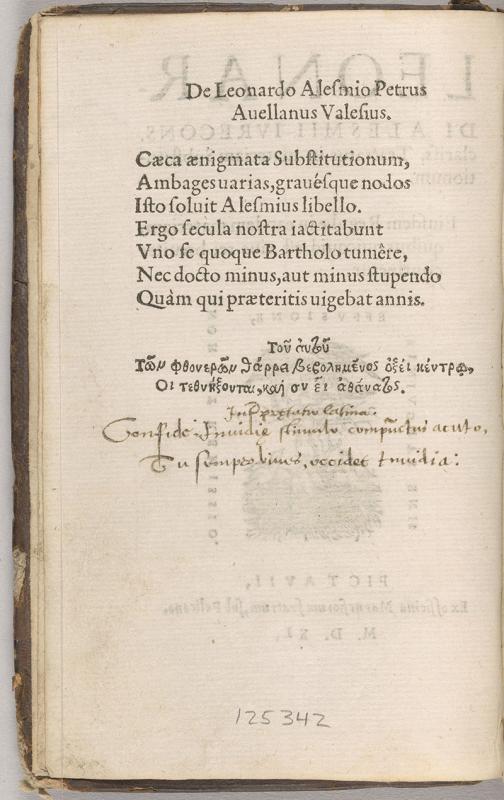 De Leonardo Aleſmio Petrus
Auellanus Valeſius.
Cæca ænigmata Subſtitutionum,
Ambages uarias, grauéſque nodos
Iſto ſoluit Aleſmius libello.
Ergo ſecula noſtra iactitabunt
Vno ſe quoque Bartholo tumêre,
Nec docto minus, aut minus ſtupendo
Quàm qui præteritis uigebat annis.
Τοῦ αὐτοῦ
Τῶν φθονερῶν θάρρα βεβολημένος ὀξέϊ κέντρῳ,
Οἱ τεθνήξονται, καὶ σὺ ἔσῃ ἀθάνατος.
Interpretatio latina.
Confide Inuidię stimulo compūctus acuto,
Tu semper viues, occidet Inuidia:
PICTAVII,
Ex officina Marnefiorum fratrum, ſub Pelicano.
M. D. XL.
125342